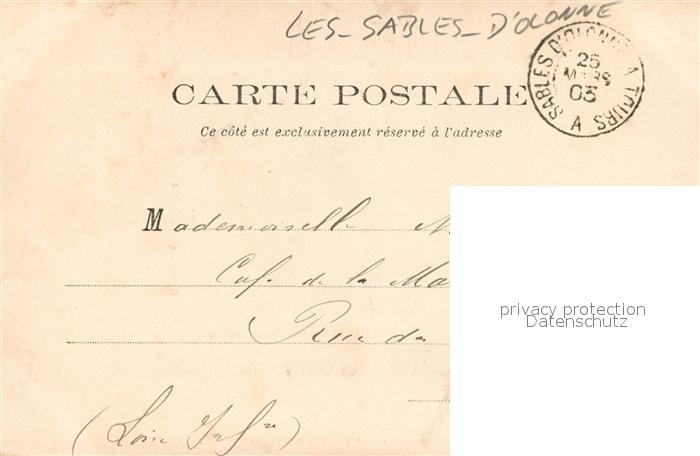 LES_SABLES_D'OLONNE
SABLES D'OLONNE A TOURS
25
MARS
03
A
CARTE POSTALE
Ce côté est exclusivement réservé à l'adresse
Mademoiselle
Caf. de la Ma
Rue du
privacy protection
Datenschutz
(Loire Infre)